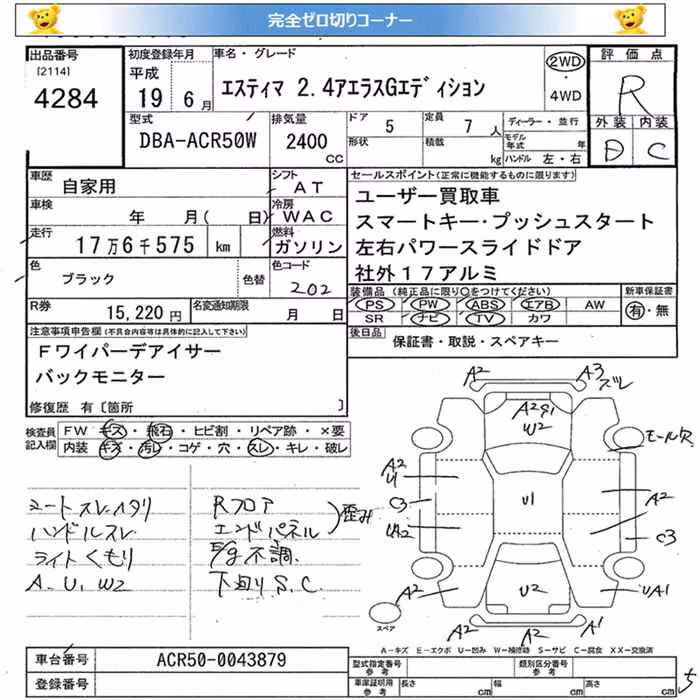 完全ゼロ切りコーナー
出品番号
[2114]
4284
初度登録年月
平成
19年 6月
車名・グレード
エスティマ 2.4アエラスGエディション
2WD
・
4WD
評価点
R
外装 内装
D C
型式
DBA-ACR50W
排気量
2400
CC
ドア 5
形状
定員 7 人
積載 kg
ディーラー・並行
モデル年式 年
ハンドル 左・右
車歴
自家用
シフト
AT
車検
年 月( 日)
冷房
WAC
走行
17万6千575 km
燃料
ガソリン
色
ブラック
色替
色コード
202
R券
15,220円
名変通知期限
月 日
セールスポイント(正常に機能するものに限ります)
ユーザー買取車
スマートキー・プッシュスタート
左右パワースライドドア
社外17アルミ
装備品(純正品に限り○をつけてください)
PS PW ABS エアB AW
SR ナビ TV カワ
新車保証書
有・無
後日品
保証書・取説・スペアキー
注意事項申告欄(不具合内容等は具体的に記入して下さい)
Fワイパーデアイサー
バックモニター
修復歴 有〔箇所 〕
検査員
記入欄
FW キズ・飛石・ヒビ割・リペア跡・×要
内装 キズ・汚レ・コゲ・穴・スレ・キレ・破レ
シートスレ、ヘタリ
ハンドルスレ
ライトくもり
A.U.W2
Rフロア
エンドパネル
歪み
E/g不調.
下廻りS.C.
A2
A3
ズレ
A2 91
W2
モール欠
A2
U1
C3
UA2
U1
A2
C3
A2
U2
UA1
A2
A2
A1
スペア
A-キズ E-エクボ U-凹み W-補修跡 S-サビ C-腐食 XX-交換済
車台番号
ACR50-0043879
登録番号
型式指定番号
参考
類別区分番号
参考
車庫証明用
参考
長さ cm
幅 cm
高さ cm